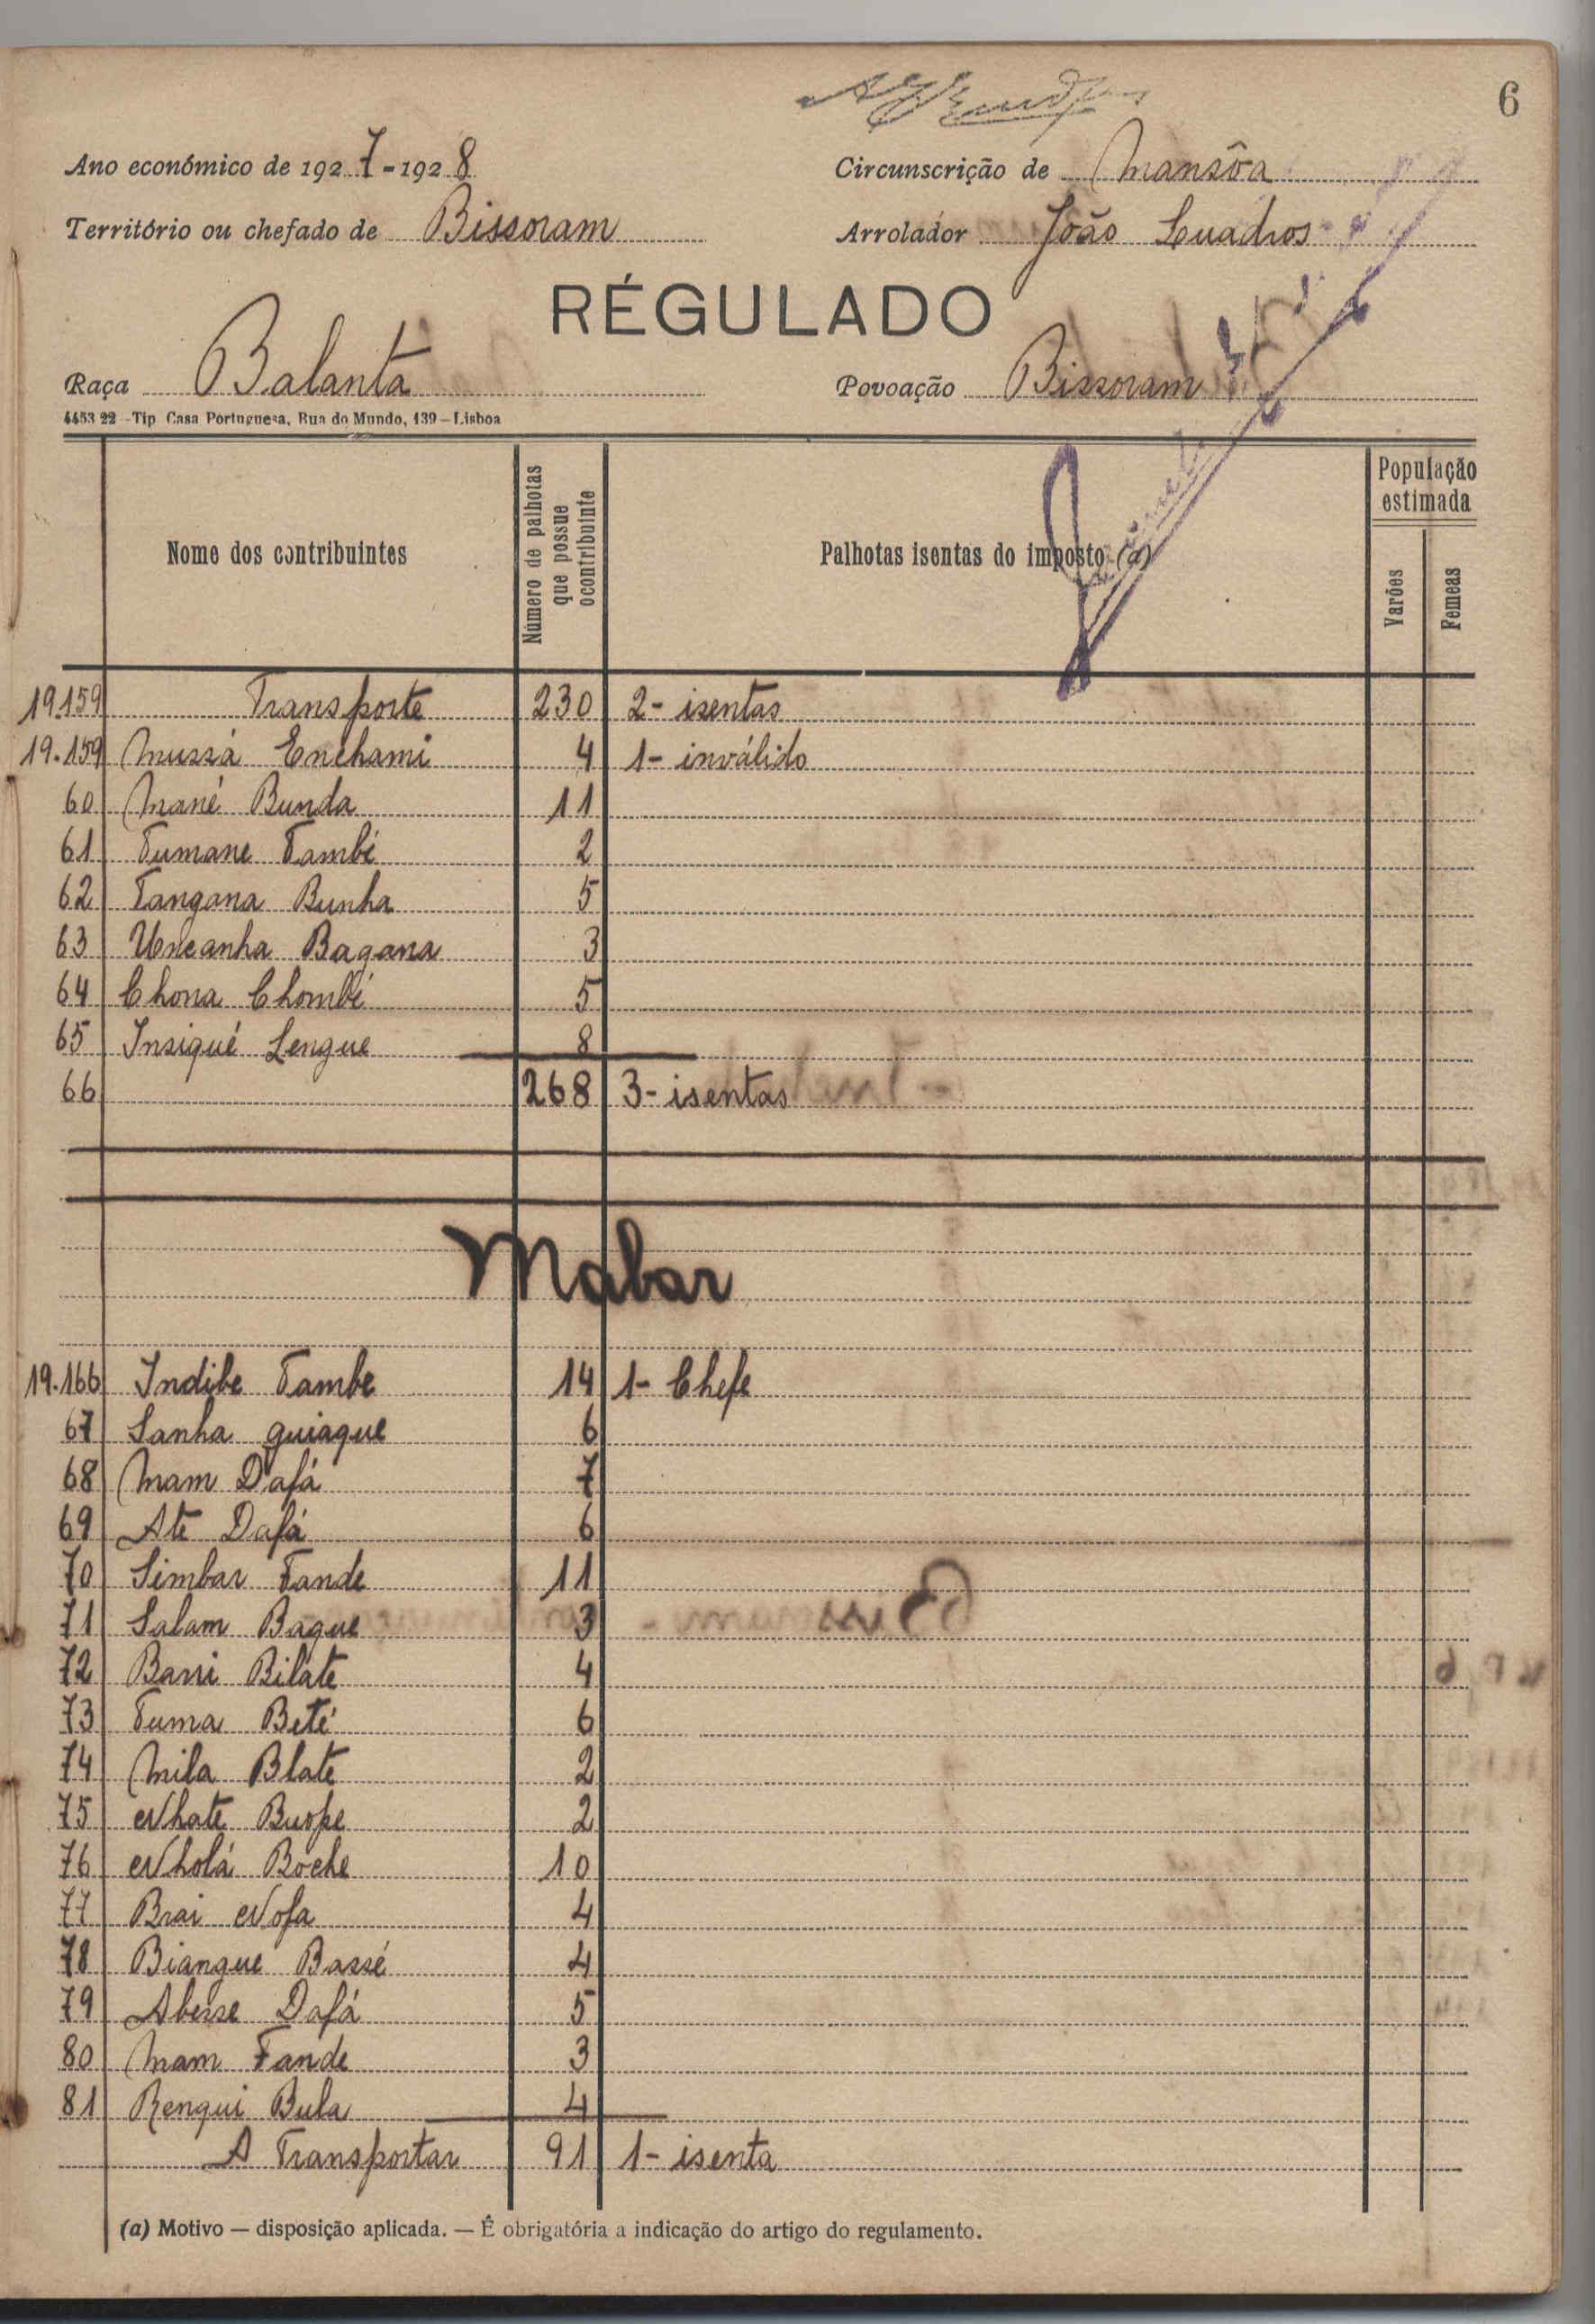 6
Ano económico de 1927-1928 Circunscrição de Mansôa
Território ou chefado de Bissoram Arrolador João Quadros
RÉGULADO
Raça Balanta Povoação Bissoram
4453 22 - Tip Casa Portuguesa, Rua do Mundo, 139 – Lisboa
Nome dos contribuintes Número de palhotas que possue o contribuinte Palhotas isentas do imposto (a) População estimada Varões Femeas
19.159 Transporte 230 2- isentas
19.159 Mussá Enchami 4 1- inválido
60 Mané Bunda 11
61 Tumane També 2
62 Tangana Bunha 5
63 Uncanha Bagana 3
64 Chona Chombé 5
65 Insiqué Lengue 8
66 268 3- isentas
Mabar
19.166 Indibe Tambe 14 1- Chefe
67 Sanha guiaque 6
68 Mam Dafá 7
69 Ate Dafá 6
70 Simbar Tande 11
71 Salam Baque 3
72 Barri Biláte 4
73 Tuma Beté 6
74 Mila Blate 2
75 Nhate Buope 2
76 Nholá Boche 10
77 Brai Nofa 4
78 Biangue Bassé 4
79 Abesse Dafá 5
80 Mam Tande 3
81 Renqui Bula 4
A Transportar 91 1- isenta
(a) Motivo — disposição aplicada. — É obrigatória a indicação do artigo do regulamento.